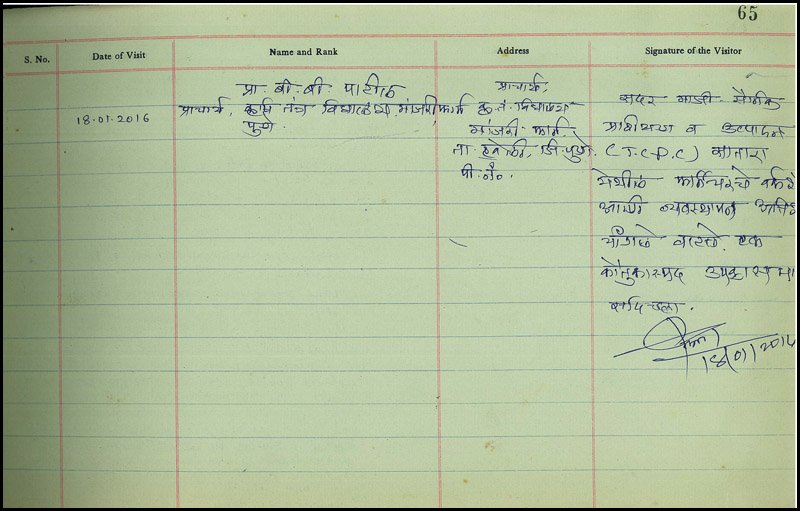 65
S. No. Date of Visit Name and Rank Address Signature of the Visitor
18.01.2016
प्रा. बी. बी. पाटील
प्राचार्य, कृषि तंत्र विद्यालय, मांजरी फार्म
पुणे.
प्राचार्य,
कृ. तं. विद्यालय
मांजरी फार्म,
ता. हवेली, जि. पुणे.
सदर माजी सैनिक
प्रशिक्षण व उत्पादन
(T.C.P.C) सातारा
येथील फर्निचरचे
आणि व्यवस्थापन
चांगले वाटले. एक
कौतुकास्पद
18/01/2016